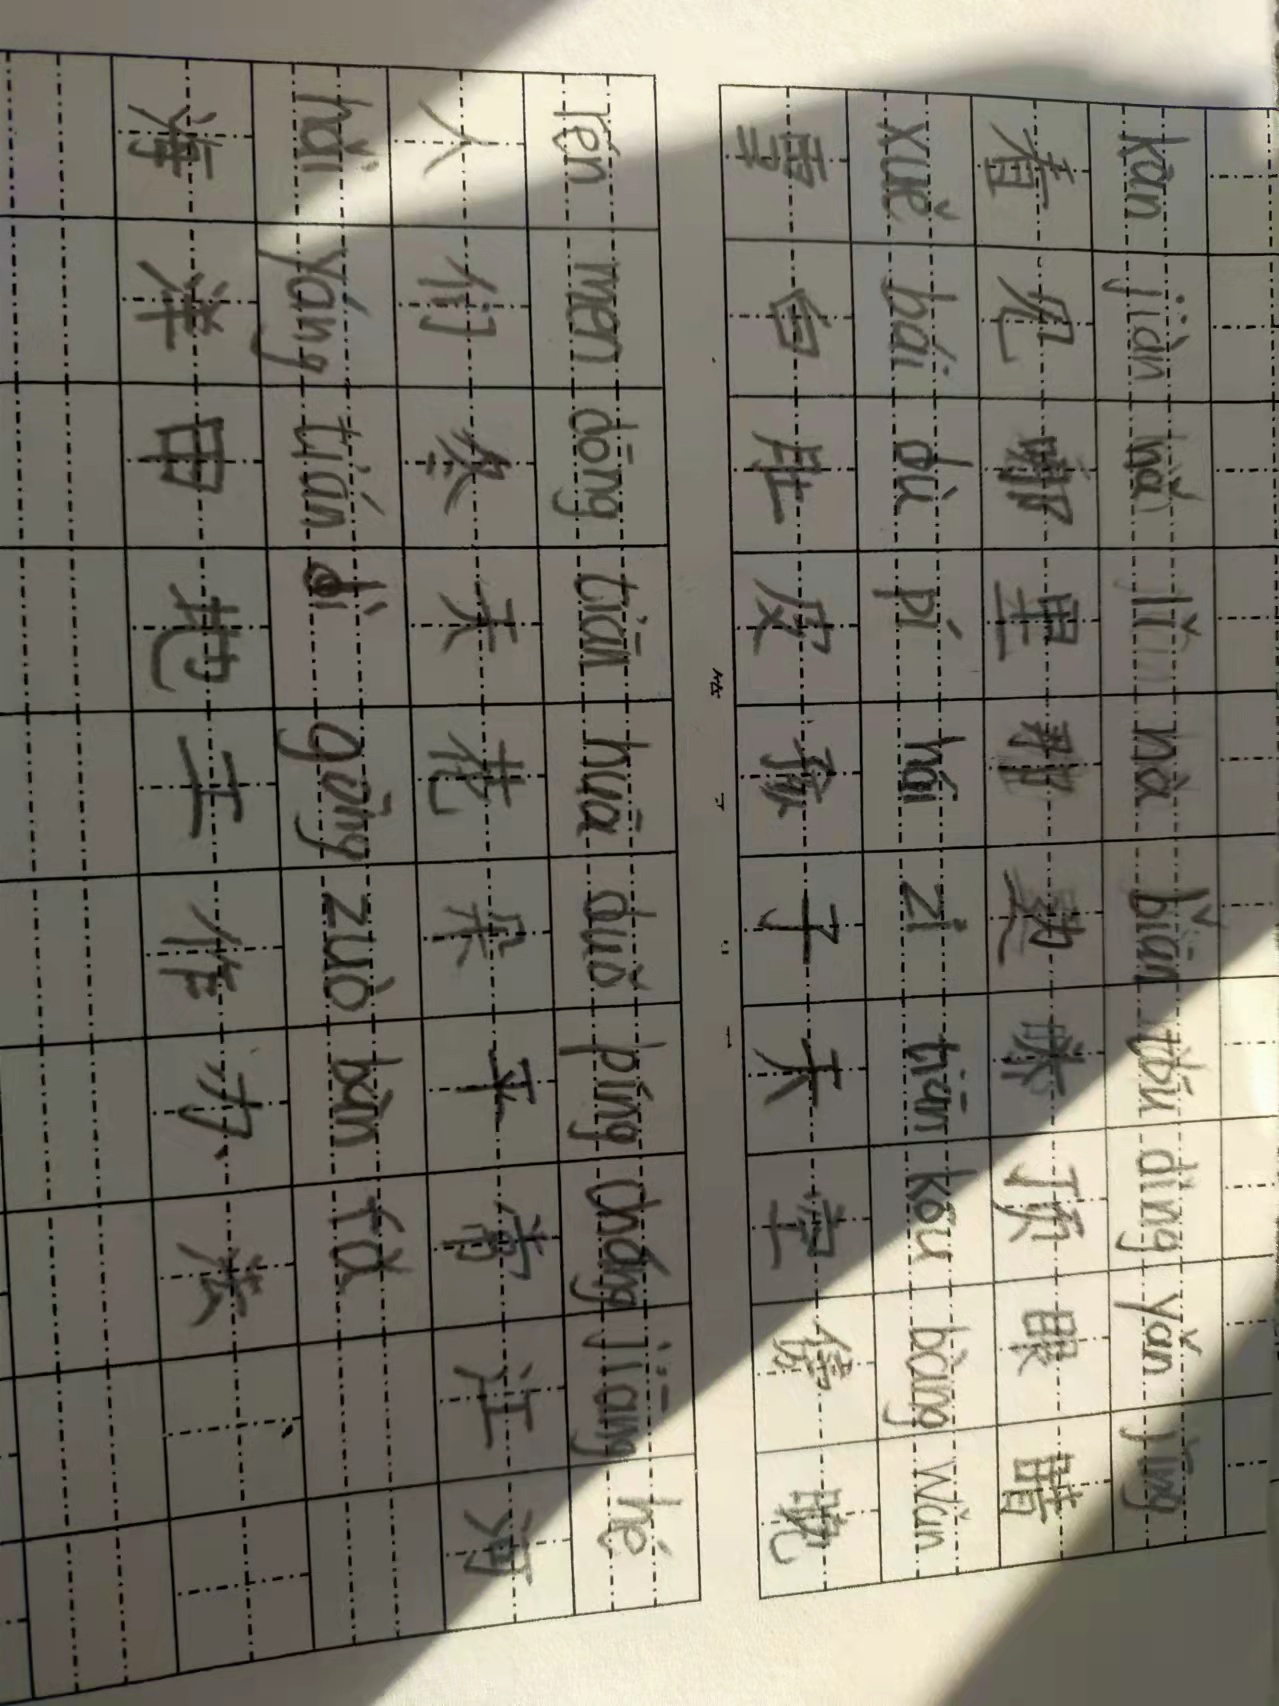 kàn jiàn nǎ lǐ nà biān tóu dǐng yǎn jīng
看 见 哪 里 那 顶 眼 睛
xuě bái dù pí hái zi tiān bàng wǎn
雪 白 肚 皮 孩 子 天 空 傍 晚
rén men dōng tiān huā duǒ píng cháng jiāng hé
人 们 冬 天 花 朵 平 常 江 河
hǎi yáng tián dì gōng zuò bàn fǎ
海 洋 田 地 工 作 办 法